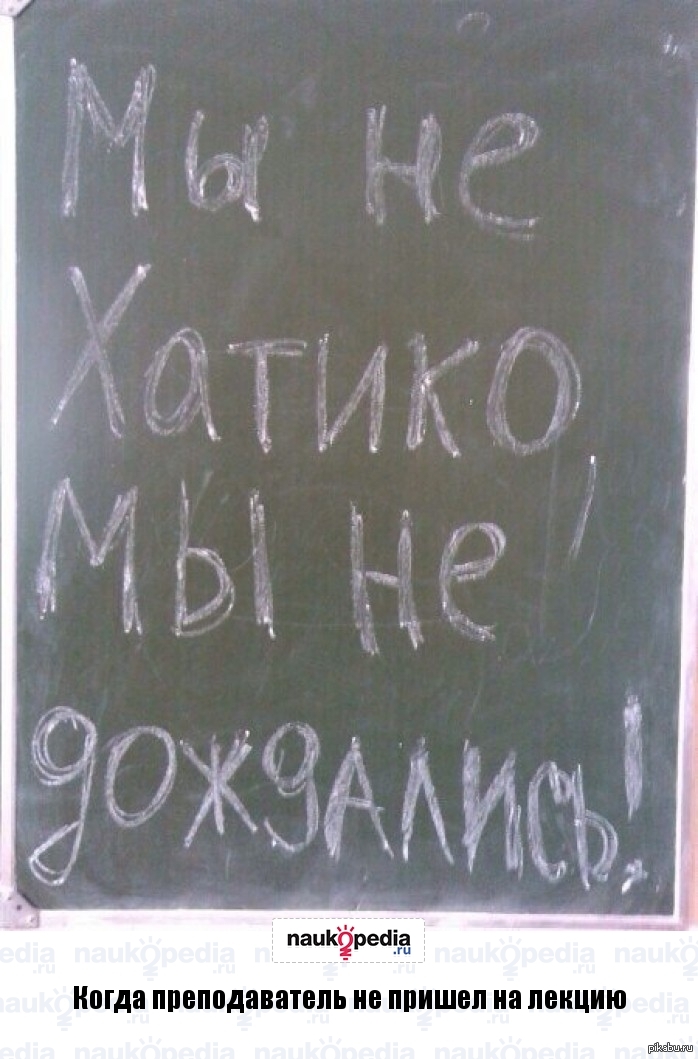 Мы не
Хатико,
мы не
дождались!
naukopedia
.ru
Когда преподаватель не пришел на лекцию
pikabu.ru